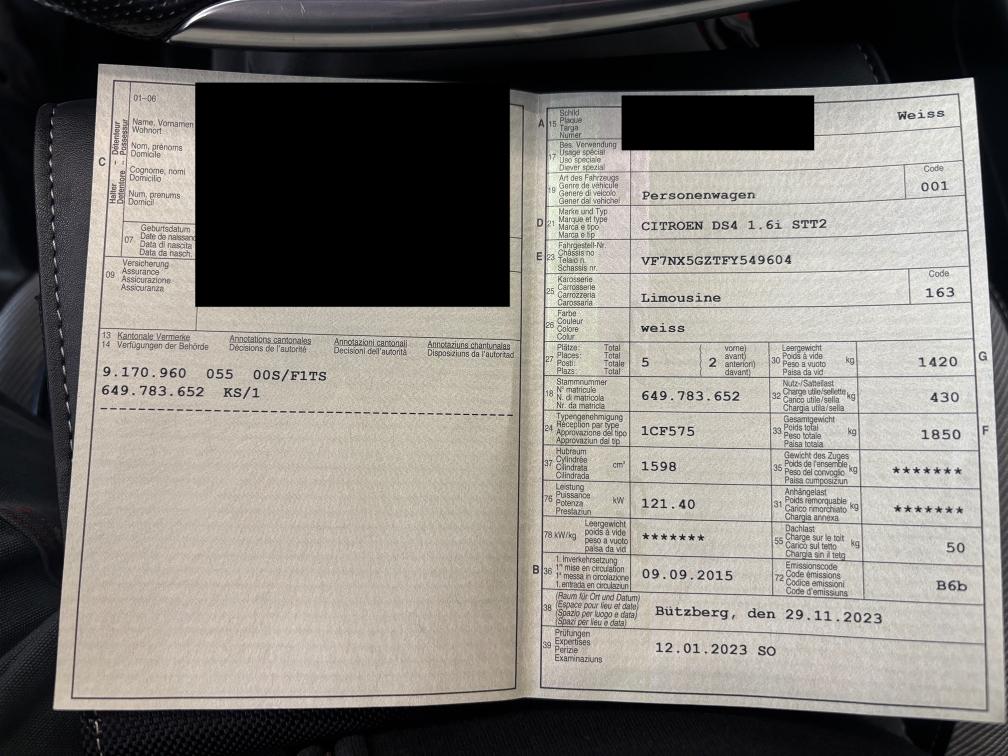 01–06
Name, Vornamen
Wohnort
Nom, prénoms
Domicile
Cognome, nomi
Domicilio
Num, prenums
Domicil
C
Halter – Détenteur
Detentore – Possessur
07
Geburtsdatum
Date de naissanc
Data di nascita
Data da nasch.
09
Versicherung
Assurance
Assicurazione
Assicuranza
13 Kantonale Vermerke Annotations cantonales Annotazioni cantonali Annotaziuns chantunalas
14 Verfügungen der Behörde Décisions de l'autorité Decisioni dell'autorità Disposiziuns da l'autoritad
9.170.960 055 00S/F1TS
649.783.652 KS/1
A 15 Schild
Plaque
Targa
Numer
Weiss
17 Bes. Verwendung
Usage spécial
Uso speciale
Diever spezial
19 Art des Fahrzeugs
Genre de véhicule
Genere di veicolo
Gener dal vehichel
Personenwagen
Code
001
D 21 Marke und Typ
Marque et type
Marca e tipo
Marca e tip
CITROEN DS4 1.6i STT2
E 23 Fahrgestell-Nr.
Châssis no
Telaio n.
Schassis nr.
VF7NX5GZTFY549604
25 Karosserie
Carrosserie
Carrozzeria
Carossaria
Limousine
Code
163
26 Farbe
Couleur
Colore
Colur
weiss
27 Plätze: Total
Places: Total
Posti: Totale
Plazs: Total
5
( 2 vorne)
avant)
anteriori)
davant)
30 Leergewicht
Poids à vide
Peso a vuoto
Paisa da vid
kg
1420
G
18 Stammnummer
N° matricule
N. di matricola
Nr. da matricla
649.783.652
32 Nutz-/Sattellast
Charge utile/sellette
Carico utile/sella
Chargia utila/sella
kg
430
24 Typengenehmigung
Réception par type
Approvazione del tipo
Approvaziun dal tip
1CF575
33 Gesamtgewicht
Poids total
Peso totale
Paisa totala
kg
1850
F
37 Hubraum
Cylindrée
Cilindrata
Cilindrada
cm³
1598
35 Gewicht des Zuges
Poids de l'ensemble
Peso del convoglio
Paisa cumposiziun
kg
*******
76 Leistung
Puissance
Potenza
Prestaziun
kW
121.40
31 Anhängelast
Poids remorquable
Carico rimorchiato
Chargia annexa
kg
*******
78 kW/kg Leergewicht
poids à vide
peso a vuoto
paisa da vid
*******
55 Dachlast
Charge sur le toit
Carico sul tetto
Chargia sin il tetg
kg
50
B 36 1. Inverkehrsetzung
1re mise en circulation
1a messa in circolazione
1. entrada en circulaziun
09.09.2015
72 Emissionscode
Code émissions
Codice emissioni
Code d'emissiuns
B6b
38 (Raum für Ort und Datum)
(Espace pour lieu et date)
(Spazio per luogo e data)
(Spazi per lieu e data)
Bützberg, den 29.11.2023
39 Prüfungen
Expertises
Perizie
Examinaziuns
12.01.2023 SO